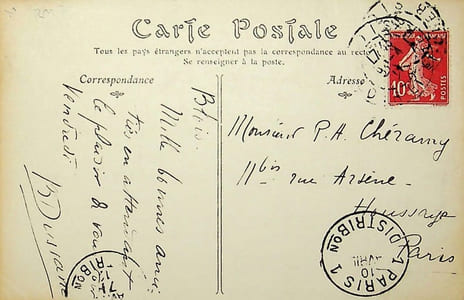 Carte Postale
Tous les pays étrangers n'acceptent pas la correspondance au recto
Se renseigner à la poste.
Correspondance
Adresse
Blois
Mille bonnes
en attendant
le plaisir de vous
Vendredi
10c
POSTES
Monsieur P. A. Chéramy
11 bis rue Arsène-
Houssaye
Paris
PARIS 1 DISTRIBON
10
AVRIL
7H
TRIBON